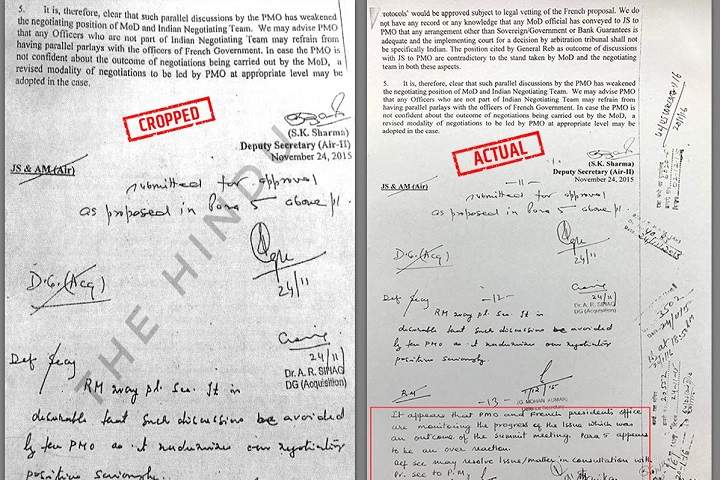 5. It is, therefore, clear that such parallel discussions by the PMO has weakened
the negotiating position of MoD and Indian Negotiating Team. We may advise PMO
that any Officers who are not part of Indian Negotiating Team may refrain from
having parallel parlays with the officers of French Government. In case the PMO is
not confident about the outcome of negotiations being carried out by the MoD, a
revised modality of negotiations to be led by PMO at appropriate level may be
adopted in the case.
CROPPED
(S.K. Sharma)
Deputy Secretary (Air-II)
November 24, 2015
JS & AM (Air)
submitted for approval
as proposed in Para 5 above pl.
24/11
D.G. (Acq)
24/11
Dr. A. R. SIHAG
DG (Acquisition)
Def Secy
RM may pl. see. It is
desirable that such discussions be avoided
by the PMO as it undermines our negotiating
position seriously.
THE HINDU
rotocols' would be approved subject to legal vetting of the French proposal. We do
not have any record or any knowledge that any MoD official has conveyed to JS to
PMO that any arrangement other than Sovereign/Government or Bank Guarantees is
adequate and the implementing court for a decision by arbitration tribunal shall not
be specifically Indian. The position cited by General Reb as outcome of discussions
with JS to PMO are contradictory to the stand taken by MoD and the negotiating
team in both these aspects.
5. It is, therefore, clear that such parallel discussions by the PMO has weakened
the negotiating position of MoD and Indian Negotiating Team. We may advise PMO
that any Officers who are not part of Indian Negotiating Team may refrain from
having parallel parlays with the officers of French Government. In case the PMO is
not confident about the outcome of negotiations being carried out by the MoD, a
revised modality of negotiations to be led by PMO at appropriate level may be
adopted in the case.
ACTUAL
(S.K. Sharma)
Deputy Secretary (Air-II)
November 24, 2015
JS & AM (Air)
-11-
submitted for approval
as proposed in Para 5 above pl.
24/11
D.G. (Acq)
24/11
Dr. A. R. SIHAG
DG (Acquisition)
Def Secy
-12-
RM may pl. see. It is
desirable that such discussions be avoided
by the PMO as it undermines our negotiating
position seriously.
1/12/15
(G MOHAN KUMAR)
RM
-13-
It appears that PMO and French president's office
are monitoring the progress of the issue which was
an outcome of the summit meeting. Para 5 appears
to be an over reaction.
Def sec may resolve issue/matter in consultation with
Pr. Sec to P.M.